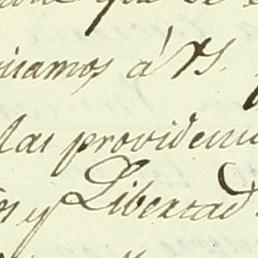 que se
amos á VS.
las providenc
y Libertad